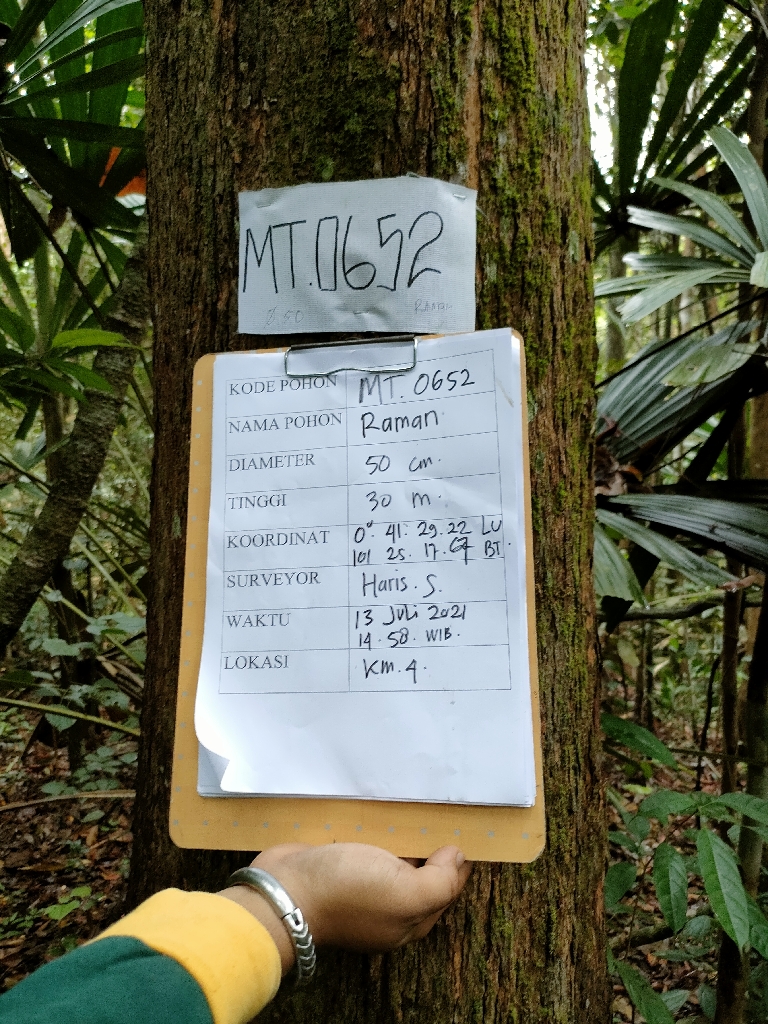 MT.0652
Ø 50 Raman
KODE POHON MT. 0652
NAMA POHON Raman
DIAMETER 50 cm.
TINGGI 30 m.
KOORDINAT 0° 41. 29.22 LU
101 25. 17.67 BT.
SURVEYOR Haris. S.
WAKTU 13 Juli 2021
14.58. WIB.
LOKASI KM. 4.